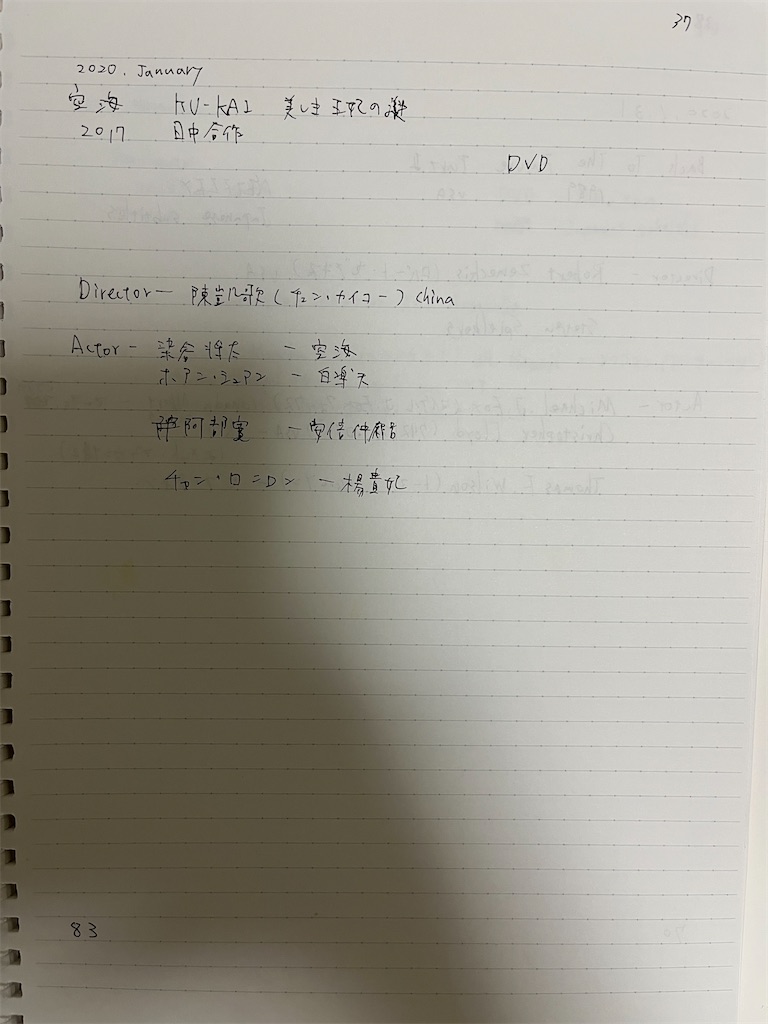 37
2020. January
空海 KU-KAI 美しき王妃の謎
2017 日中合作
DVD
Director ー 陳凱歌 (チェン・カイコー) China
Actor ー 染谷将太 ー 空海
ホアン・シュアン ー 白楽天
阿部寛 ー 安倍仲麻呂
チェン・ロ ー 楊貴妃
83